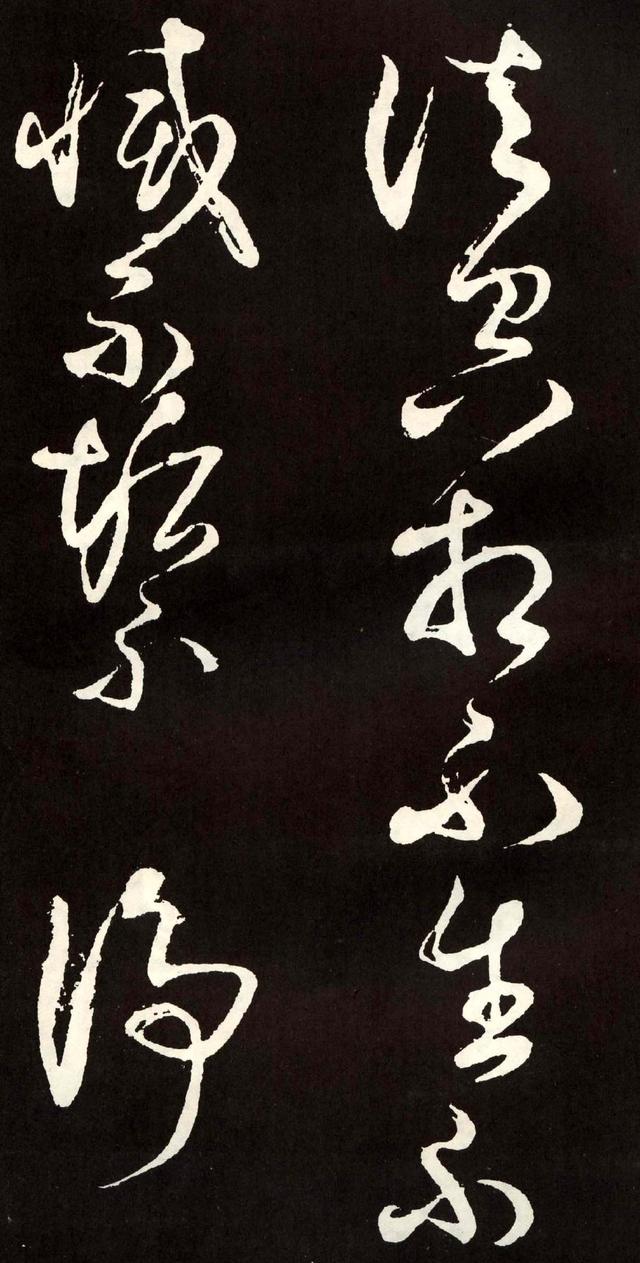 法空相不生不
滅不垢不淨